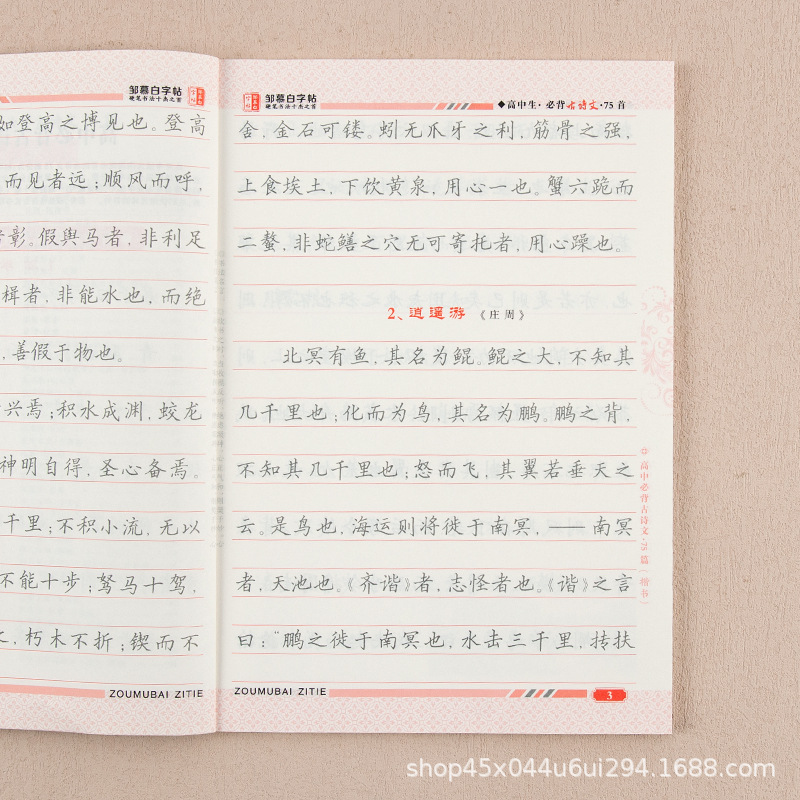 邹慕白字帖
硬笔书法十杰之首
如登高之博见也。登高
而见者远；顺风而呼，
者彰。假舆马者，非利足
楫者，非能水也，而绝
，善假于物也。
兴焉；积水成渊，蛟龙
神明自得，圣心备焉。
千里；不积小流，无以
不能十步；驽马十驾，
，朽木不折；锲而不
ZOUMUBAI ZITIE
邹慕白字帖
硬笔书法十杰之首
◆高中生·必背古诗文·75首
舍，金石可镂。蚓无爪牙之利，筋骨之强，
上食埃土，下饮黄泉，用心一也。蟹六跪而
二螯，非蛇鳝之穴无可寄托者，用心躁也。
2、逍遥游 《庄周》
北冥有鱼，其名为鲲。鲲之大，不知其
几千里也；化而为鸟，其名为鹏。鹏之背，
不知其几千里也；怒而飞，其翼若垂天之
云。是鸟也，海运则将徙于南冥，——南冥
者，天池也。《齐谐》者，志怪者也。《谐》之言
曰：“鹏之徙于南冥也，水击三千里，抟扶
高中必背古诗文·75篇（楷书）
ZOUMUBAI ZITIE
3
shop45x044u6ui294.1688.com